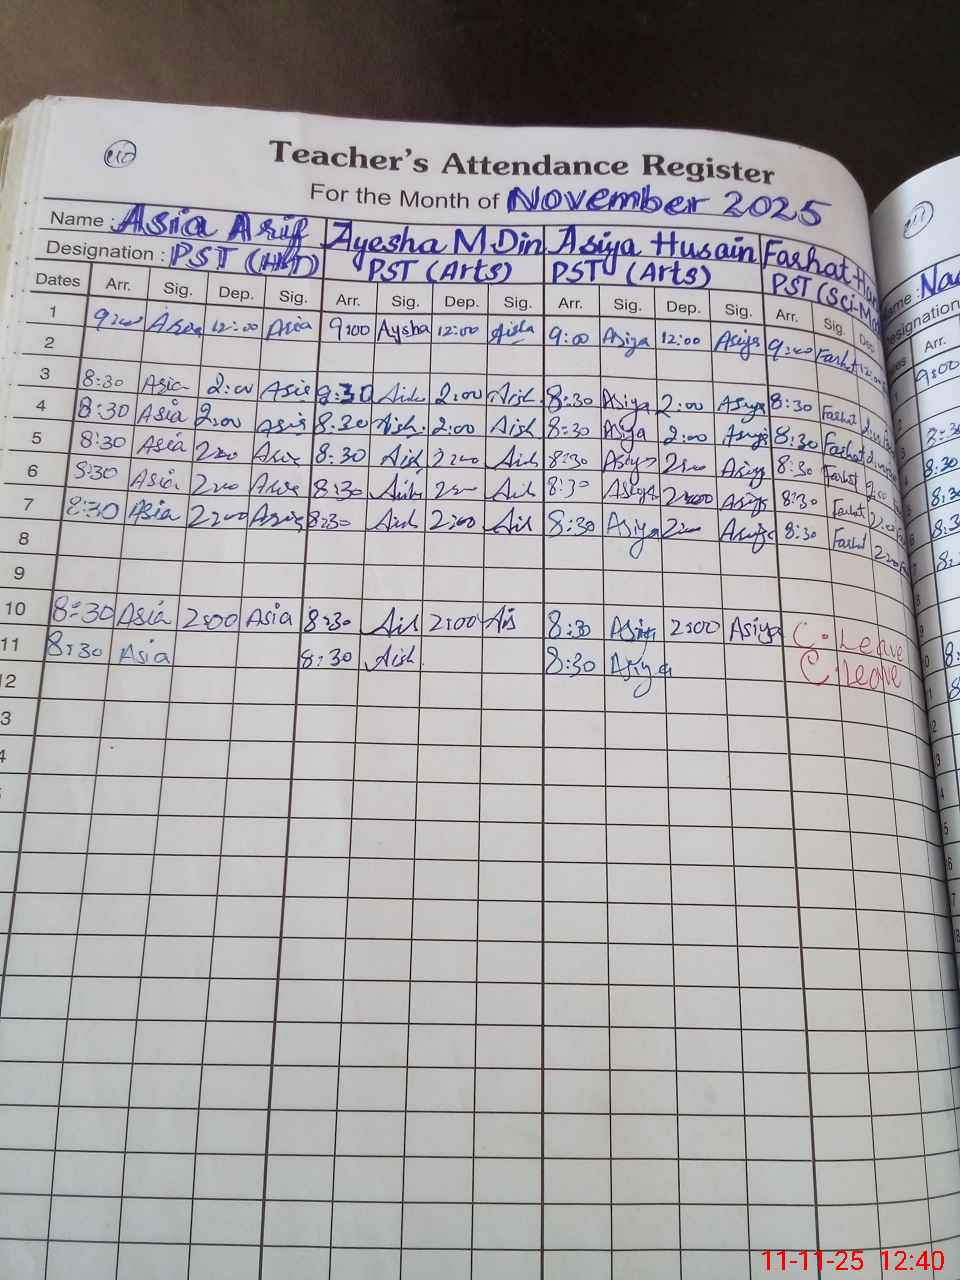 Teacher's Attendance Register
For the Month of November 2025
Name : Asia Arif Ayesha M.Din Asiya Husain Farhat
Designation : PST (HHT) PST (Arts) PST (Arts) PST (Sci-M
Dates Arr. Sig. Dep. Sig. Arr. Sig. Dep. Sig. Arr. Sig. Dep. Sig. Arr. Sig. Dep
1 9:00 Asia 12:00 Asia 9:00 Aysha 12:00 Aisha 9:00 Asiya 12:00 Asiya 9:00 Farhat 12:00
2
3 8:30 Asia 2:00 Asia 8:30 Aish 2:00 Aish 8:30 Asiya 2:00 Asiya 8:30 Farhat 2:00
4 8:30 Asia 2:00 Asia 8:30 Aish 2:00 Aish 8:30 Asiya 2:00 Asiya 8:30 Farhat 2:00
5 8:30 Asia 2:00 Asia 8:30 Aish 2:00 Aish 8:30 Asiya 2:00 Asiya 8:30 Farhat 2:00
6 8:30 Asia 2:00 Asia 8:30 Aish 2:00 Aish 8:30 Asiya 2:00 Asiya 8:30 Farhat 2:00
7 8:30 Asia 2:00 Asia 8:30 Aish 2:00 Ais 8:30 Asiya 2:00 Asiya 8:30 Farhat 2:00
8
9
10 8:30 Asia 2:00 Asia 8:30 Aish 2:00 Ais 8:30 Asiya 2:00 Asiya C. Leave
11 8:30 Asia 8:30 Aish 8:30 Asiya C. Leave
12
3
4
11-11-25 12:40